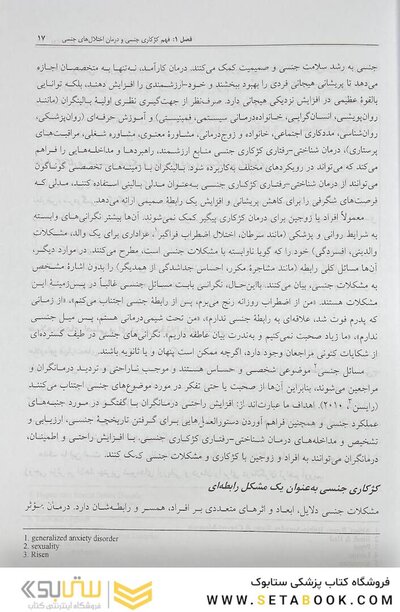 فصل ۱: فهم کژکاری جنسی و درمان اختلال‌های جنسی ۱۷
جنسی به رشد سلامت جنسی و صمیمیت کمک می‌کنند. درمان کارآمد، نه‌تنها به متخصصان اجازه
می‌دهد تا پریشانی هیجانی فردی را بهبود ببخشند و خود-ارزشمندی را افزایش دهند، بلکه توانایی
بالقوهٔ عظیمی در افزایش نزدیکی هیجانی دارد. صرف‌نظر از جهت‌گیری نظری اولیهٔ بالینگران (مانند
روان‌پویشی، انسان‌گرایی، خانواده‌درمانی سیستمی، فمینیستی) و آموزش حرفه‌ای (روان‌پزشکی،
روان‌شناسی، مددکاری اجتماعی، خانواده و زوج‌درمانی، مشاورهٔ معنوی، مشاوره شغلی، مراقبت‌های
پرستاری)، درمان شناختی-رفتاری کژکاری جنسی منابع ارزشمند، راهبردها و مداخله‌هایی را فراهم
می‌کند که می‌تواند در رویکردهای مختلف به‌کاربرده شود. بالینگران با زمینه‌های تخصصی گوناگون
می‌توانند از درمان شناختی-رفتاری کژکاری جنسی به‌عنوان مدلی بالینی استفاده کنند، مدلی که
فرصت‌های شگرفی را برای کاهش پریشانی و افزایش یک رابطهٔ صمیمی ارائه می‌دهد.
معمولاً افراد یا زوجین برای درمان کژکاری پیگیر کمک نمی‌شوند. آن‌ها بیشتر نگرانی‌های وابسته
به شرایط روانی و پزشکی (مانند سرطان، اختلال اضطراب فراگیر۱، عزاداری برای یک والد، مشکلات
والدینی، افسردگی) خود را که گویا ناوابسته با مشکلات جنسی است، مطرح می‌کنند. در موارد دیگر،
آن‌ها مسائل کلی رابطه (مانند مشاجرهٔ مکرر، احساس جداشدگی از همدیگر) را بدون اشارهٔ مشخص
به مشکلات جنسی، بیان می‌کنند. بااین‌حال، نگرانی بابت مسائل جنسی غالباً در پس‌زمینهٔ این
مشکلات هستند. «من از اضطراب روزانه رنج می‌برم، پس از رابطهٔ جنسی اجتناب می‌کنم»، «از زمانی
که پدرم فوت شد، علاقه‌ای به رابطهٔ جنسی ندارم»، «من تحت شیمی‌درمانی هستم، پس میل جنسی
ندارم»، «ما زیاد صحبت نمی‌کنیم و به‌ندرت بیان عاطفه داریم». نگرانی‌های جنسی در طیف گسترده‌ای
از شکایات کنونی مراجعان وجود دارد، اگرچه ممکن است پنهان و یا ثانویه باشند.
مسائل جنسی۲ موضوعی شخصی و حساس هستند و موجب ناراحتی و تردید درمانگران و
مراجعین می‌شوند، بنابراین آن‌ها از صحبت یا حتی تفکر در مورد موضوع‌های جنسی اجتناب می‌کنند
(رایسن۳، ۲۰۱۰). اهداف ما عبارت‌اند از: افزایش راحتی درمانگران با گفتگو در مورد جنبه‌های
عملکرد جنسی و همچنین فراهم آوردن دستورالعمل‌هایی برای گرفتن تاریخچهٔ جنسی، ارزیابی و
تشخیص و مداخله‌های درمان شناختی-رفتاری کژکاری جنسی. با افزایش راحتی و اطمینان،
درمانگران می‌توانند به افراد و زوجین با کژکاری و مشکلات جنسی کمک کنند.
کژکاری جنسی به‌عنوان یک مشکل رابطه‌ای
مشکلات جنسی دلایل، ابعاد و اثرهای متعددی بر افراد، همسر و رابطه‌شان دارد. درمان مؤثر
1. generalized anxiety disorder
2. sexuality
3. Risen
ستابوک
فروشگاه اینترنتی کتاب
فروشگاه کتاب پزشکی ستابوک
WWW.SETABOOK.COM